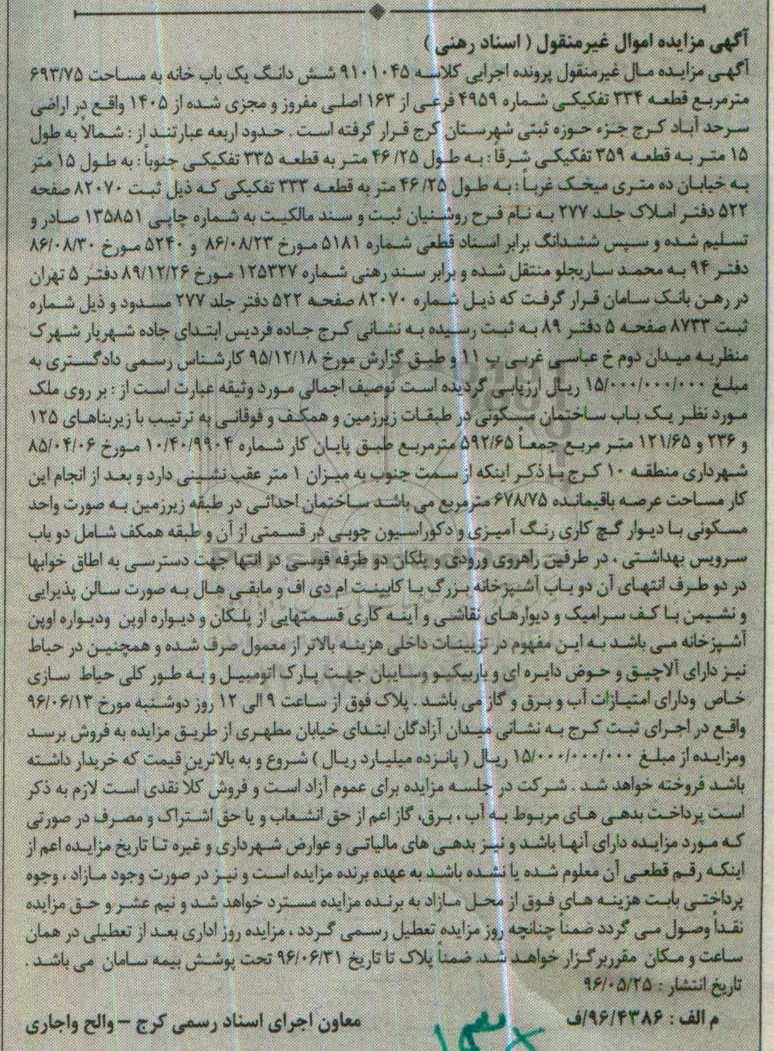 آگهی مزایده اموال غیرمنقول ( اسناد رهنی )
آگهی مزایده مال غیرمنقول پرونده اجرایی کلاسه ۹۱۰۱۰۴۵ شش دانگ یک باب خانه به مساحت ۶۹۳/۷۵
مترمربع قطعه ۳۳۴ تفکیکی شماره ۴۹۵۹ فرعی از ۱۶۳ اصلی مفروز و مجزی شده از ۱۴۰۵ واقع در اراضی
سرحد آباد کرج جزء حوزه ثبتی شهرستان کرج قرار گرفته است . حدود اربعه عبارتند از : شمالاً به طول
۱۵ متر به قطعه ۳۵۹ تفکیکی شرقاً : به طول ۴۶/۲۵ متر به قطعه ۳۳۵ تفکیکی جنوباً : به طول ۱۵ متر
به خیابان ده متری میخک غرباً : به طول ۴۶/۲۵ متر به قطعه ۳۳۳ تفکیکی که ذیل ثبت ۸۲۰۷۰ صفحه
۵۲۲ دفتر املاک جلد ۲۷۷ به نام فرح روشنیان ثبت و سند مالکیت به شماره چاپی ۱۳۵۸۵۱ صادر و
تسلیم شده و سپس ششدانگ برابر اسناد قطعی شماره ۵۱۸۱ مورخ ۸۶/۰۸/۲۳ و ۵۲۴۰ مورخ ۸۶/۰۸/۳۰
دفتر ۹۴ به محمد ساریجلو منتقل شده و برابر سند رهنی شماره ۱۲۵۳۲۷ مورخ ۸۹/۱۲/۲۶ دفتر ۵ تهران
در رهن بانک سامان قرار گرفت که ذیل شماره ۸۲۰۷۰ صفحه ۵۲۲ دفتر جلد ۲۷۷ مسدود و ذیل شماره
ثبت ۸۷۳۳ صفحه ۵ دفتر ۸۹ به ثبت رسیده به نشانی کرج جاده فردیس ابتدای جاده شهریار شهرک
منظریه میدان دوم خ عباسی غربی پ ۱۱ و طبق گزارش مورخ ۹۵/۱۲/۱۸ کارشناس رسمی دادگستری به
مبلغ ۱۵/۰۰۰/۰۰۰/۰۰۰ ریال ارزیابی گردیده است توصیف اجمالی مورد وثیقه عبارت است از : بر روی ملک
مورد نظر یک باب ساختمان مسکونی در طبقات زیرزمین و همکف و فوقانی به ترتیب با زیربناهای ۱۲۵
و ۲۳۶ و ۱۲۱/۶۵ متر مربع جمعاً ۵۹۲/۶۵ مترمربع طبق پایان کار شماره ۱۰/۴۰/۹۹۰۴ مورخ ۸۵/۰۴/۰۶
شهرداری منطقه ۱۰ کرج با ذکر اینکه از سمت جنوب به میزان ۱ متر عقب نشینی دارد و بعد از انجام این
کار مساحت عرصه باقیمانده ۶۷۸/۷۵ مترمربع می باشد ساختمان احداثی در طبقه زیرزمین به صورت واحد
مسکونی با دیوار گچ کاری رنگ آمیزی و دکوراسیون چوبی در قسمتی از آن و طبقه همکف شامل دو باب
سرویس بهداشتی ، در طرفین راهروی ورودی و پلکان دو طرفه قوسی در انتها جهت دسترسی به اطاق خوابها
در دو طرف انتهای آن دو باب آشپزخانه بزرگ با کابینت ام دی اف و مابقی هال به صورت سالن پذیرایی
و نشیمن با کف سرامیک و دیوارهای نقاشی و آینه کاری قسمتهایی از پلکان و دیواره اوپن ودیواره اوپن
آشپزخانه می باشد به این مفهوم در تزیینات داخلی هزینه بالاتر از معمول صرف شده و همچنین در حیاط
نیز دارای آلاچیق و حوض دایره ای و باربیکیو وسایبان جهت پارک اتومبیل و به طور کلی حیاط سازی
خاص ودارای امتیازات آب و برق و گاز می باشد . پلاک فوق از ساعت ۹ الی ۱۲ روز دوشنبه مورخ ۹۶/۰۶/۱۳
واقع در اجرای ثبت کرج به نشانی میدان آزادگان ابتدای خیابان مطهری از طریق مزایده به فروش برسد
ومزایده از مبلغ ۱۵/۰۰۰/۰۰۰/۰۰۰ ریال ( پانزده میلیارد ریال ) شروع و به بالاترین قیمت که خریدار داشته
باشد فروخته خواهد شد . شرکت در جلسه مزایده برای عموم آزاد است و فروش کلاً نقدی است لازم به ذکر
است پرداخت بدهی های مربوط به آب ، برق، گاز اعم از حق انشعاب و یا حق اشتراک و مصرف در صورتی
که مورد مزایده دارای آنها باشد و نیز بدهی های مالیاتی و عوارض شهرداری و غیره تا تاریخ مزایده اعم از
اینکه رقم قطعی آن معلوم شده یا نشده باشد به عهده برنده مزایده است و نیز در صورت وجود مازاد ، وجوه
پرداختی بابت هزینه های فوق از محل مازاد به برنده مزایده مسترد خواهد شد و نیم عشر و حق مزایده
نقداً وصول می گردد ضمناً چنانچه روز مزایده تعطیل رسمی گردد ، مزایده روز اداری بعد از تعطیلی در همان
ساعت و مکان مقرربرگزار خواهد شد. ضمناً پلاک تا تاریخ ۹۶/۰۶/۳۱ تحت پوشش بیمه سامان می باشد .
تاریخ انتشار : ۹۶/۰۵/۲۵
م الف : ۹۶/۴۳۸۶/ف معاون اجرای اسناد رسمی کرج – والح واجاری